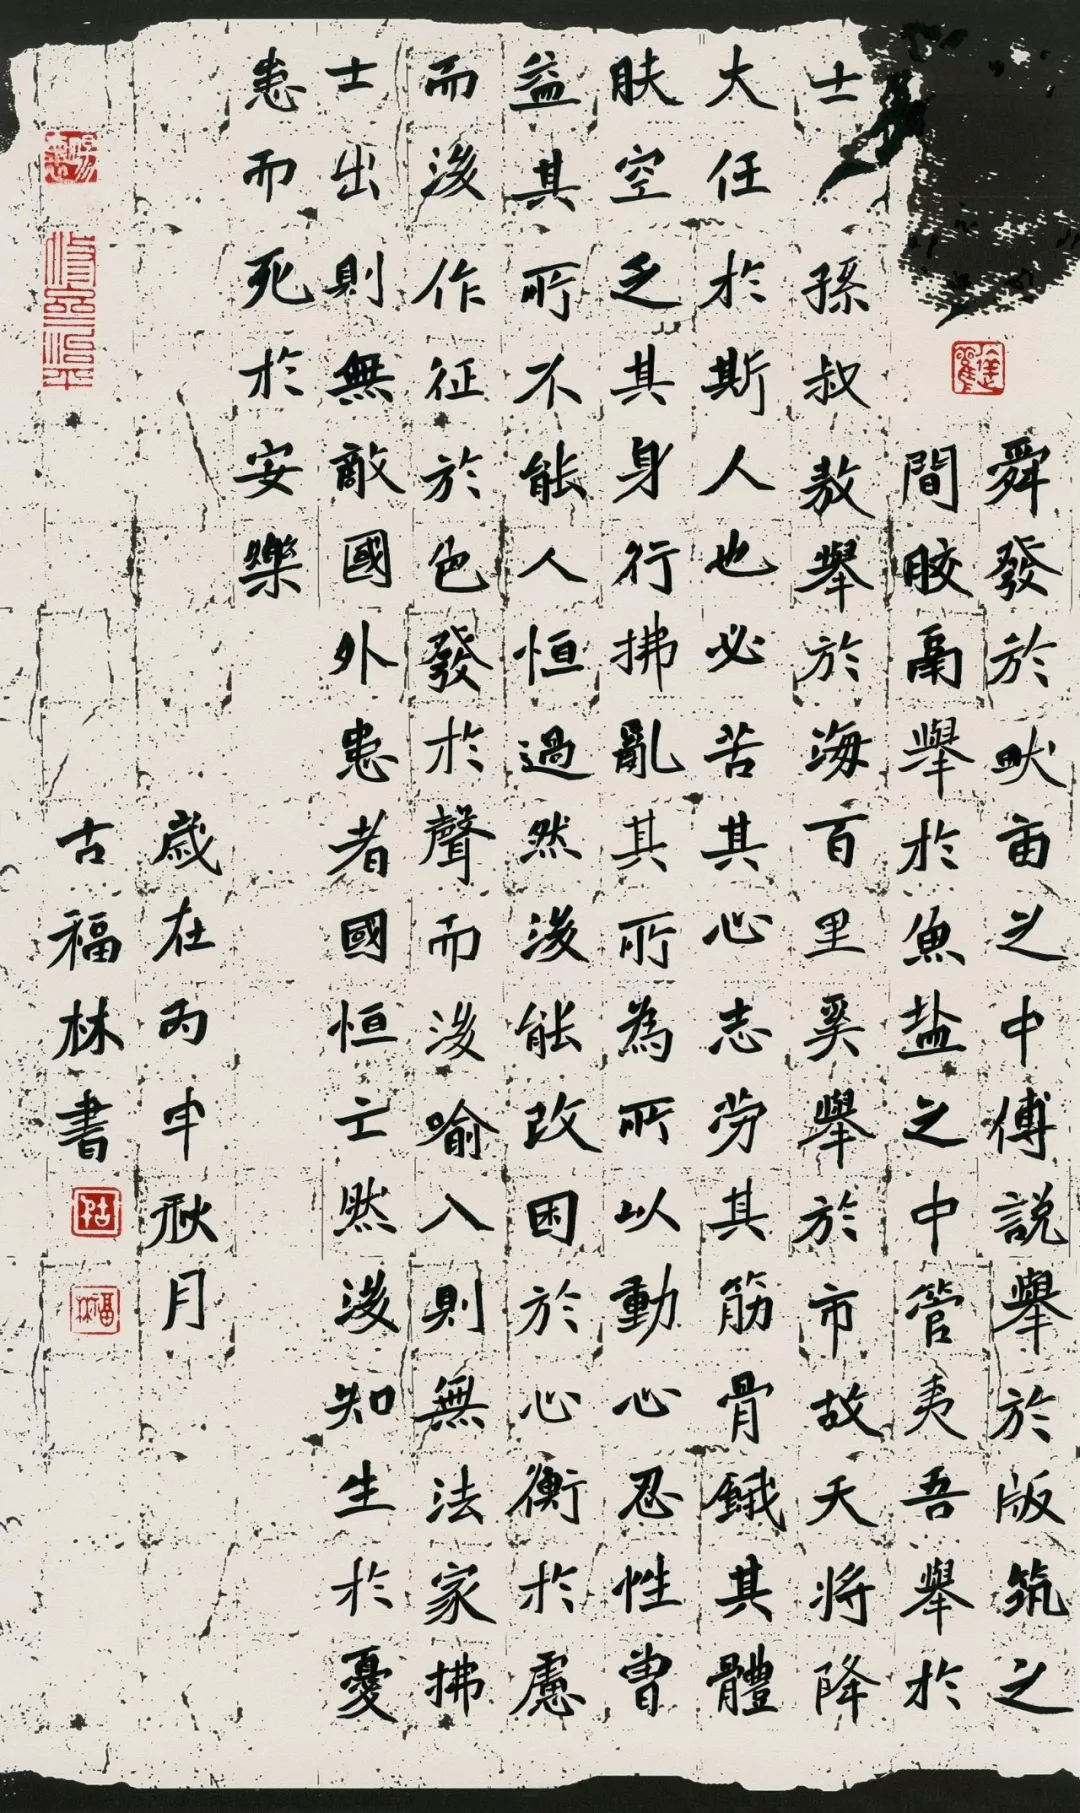 舜發於畎亩之中傅説舉於版筑之
間胶鬲舉於魚盐之中管夷吾舉於
士孫叔敖舉於海百里奚舉於市故天将降
大任於斯人也必苦其心志劳其筋骨餓其體
肤空乏其身行拂亂其所為所以動心忍性曾
益其所不能人恒過然後能改困於心衡於慮
而後作征於色發於聲而後喻入則無法家拂
士出則無敵國外患者國恒亡然後知生於憂
患而死於安樂
歲在丙申秋月
古福林書
福林
修齊治平